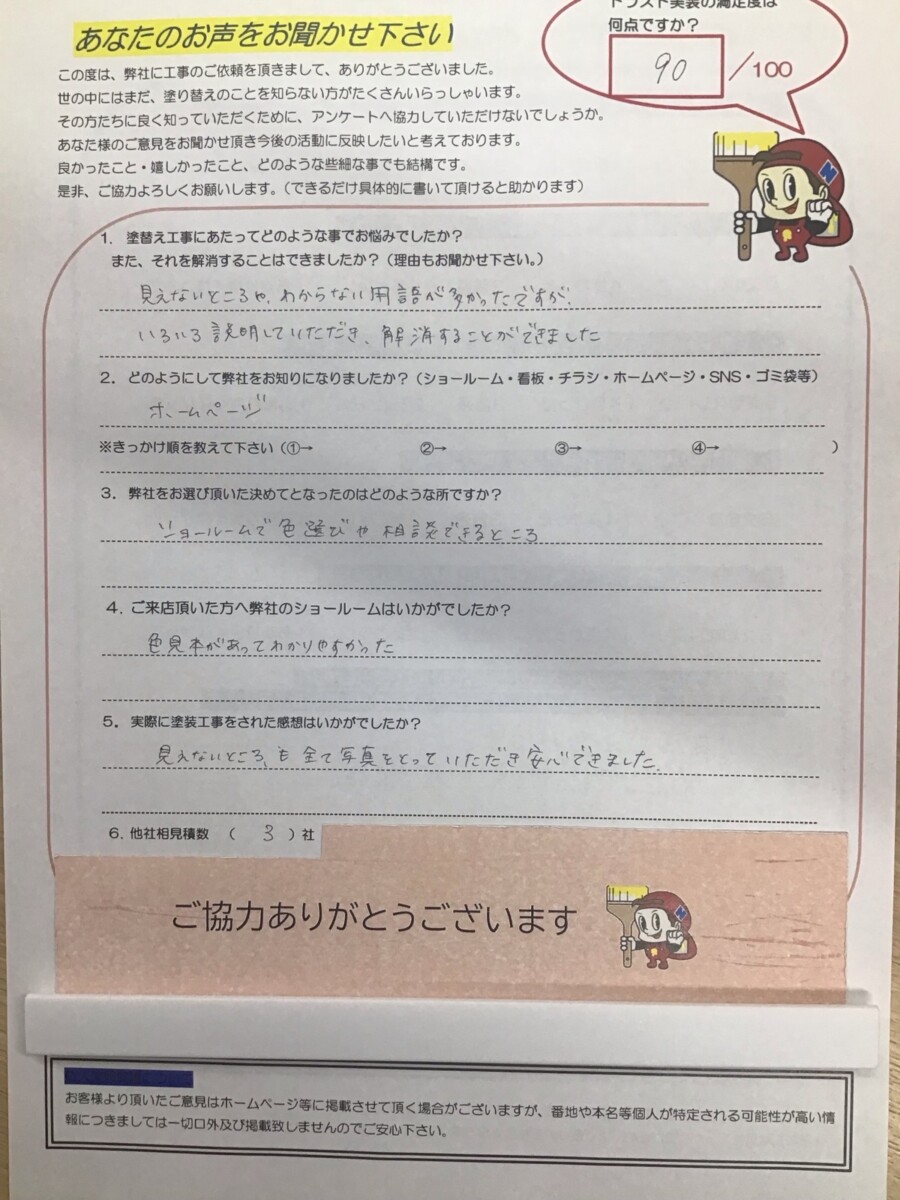 あなたのお声をお聞かせ下さい
トラスト実装の満足度は
何点ですか？
90 ／100
この度は、弊社に工事のご依頼を頂きまして、ありがとうございました。
世の中にはまだ、塗り替えのことを知らない方がたくさんいらっしゃいます。
その方たちに良く知っていただくために、アンケートへ協力していただけないでしょうか。
あなた様のご意見をお聞かせ頂き今後の活動に反映したいと考えております。
良かったこと・嬉しかったこと、どのような些細な事でも結構です。
是非、ご協力よろしくお願いします。（できるだけ具体的に書いて頂けると助かります）
1. 塗替え工事にあたってどのような事でお悩みでしたか？
また、それを解消することはできましたか？（理由もお聞かせ下さい。）
見えないところや、わからない用語が多かったですが、
いろいろ説明していただき、解消することができました
2. どのようにして弊社をお知りになりましたか？（ショールーム・看板・チラシ・ホームページ・SNS・ゴミ袋等）
ホームページ
※きっかけ順を教えて下さい（①→ ②→ ③→ ④→ ）
3. 弊社をお選び頂いた決めてとなったのはどのような所ですか？
ショールームで色選びや相談できるところ
4. ご来店頂いた方へ弊社のショールームはいかがでしたか？
色見本があってわかりやすかった
5. 実際に塗装工事をされた感想はいかがでしたか？
見えないところも全て写真をとっていただき安心できました。
6. 他社相見積数 （ 3 ）社
ご協力ありがとうございます
お客様より頂いたご意見はホームページ等に掲載させて頂く場合がございますが、番地や本名等個人が特定される可能性が高い情
報につきましては一切口外及び掲載致しませんのでご安心下さい。